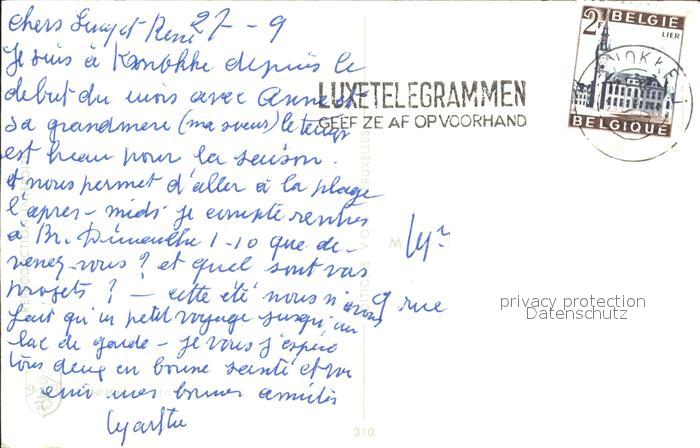 chers Suzy et René 27 - 9
Je suis à Knokke depuis le
debut du mois avec Anne et
sa grandmère (ma soeur) le temps
est beau pour la saison.
et nous permet d'aller à la plage
l'après-midi je compte rentrer
à Br. Dimanche 1-10 que de-
venez-vous ? et quel sont vos
projets ? — cette été nous n'avons
fait qu'un petit voyage jusqu'au
lac de garde - je vous j'espère
tous deux en bonne santé et
mes bonnes amitiés
Marthe
2F
BELGIË
LIER
BELGIQUE
KNOKKE 1
LUXETELEGRAMMEN
GEEF ZE AF OP VOORHAND
M
9 rue
privacy protection
Datenschutz
310